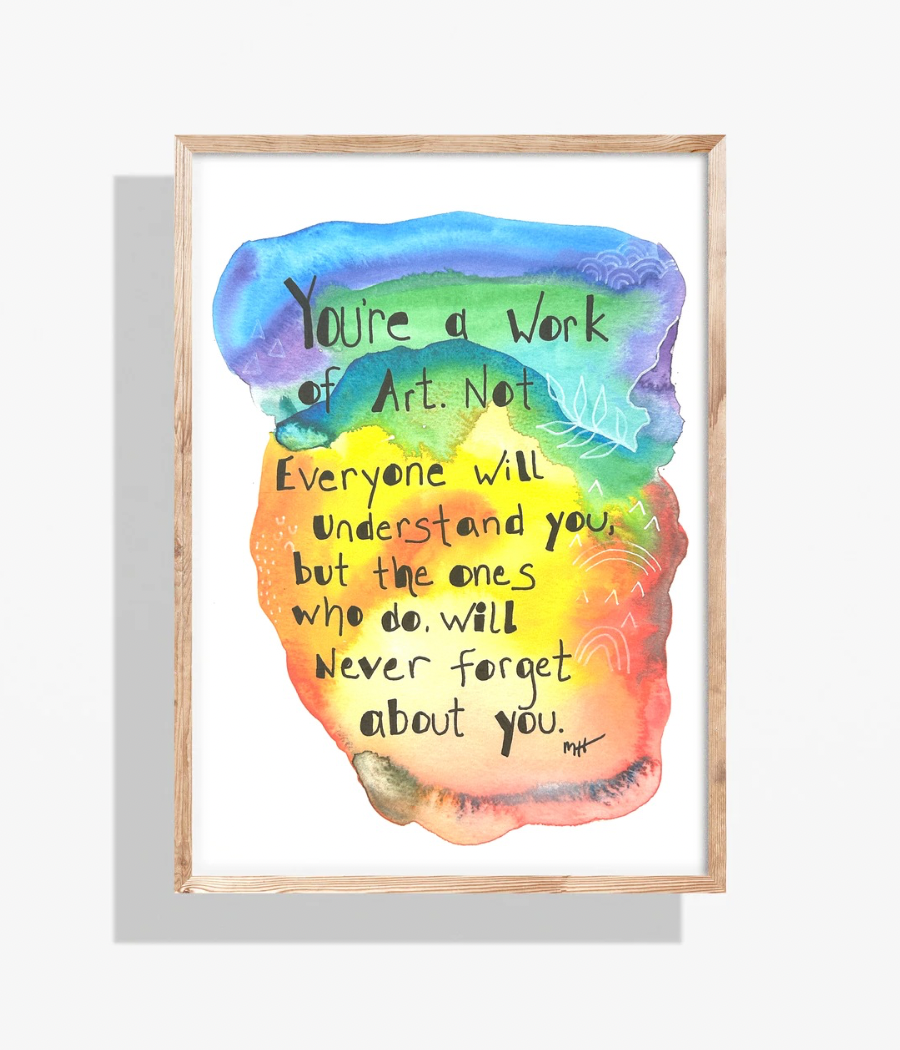 You're a Work
of Art. Not
Everyone will
understand you,
but the ones
who do. will
Never forget
about you.
MH